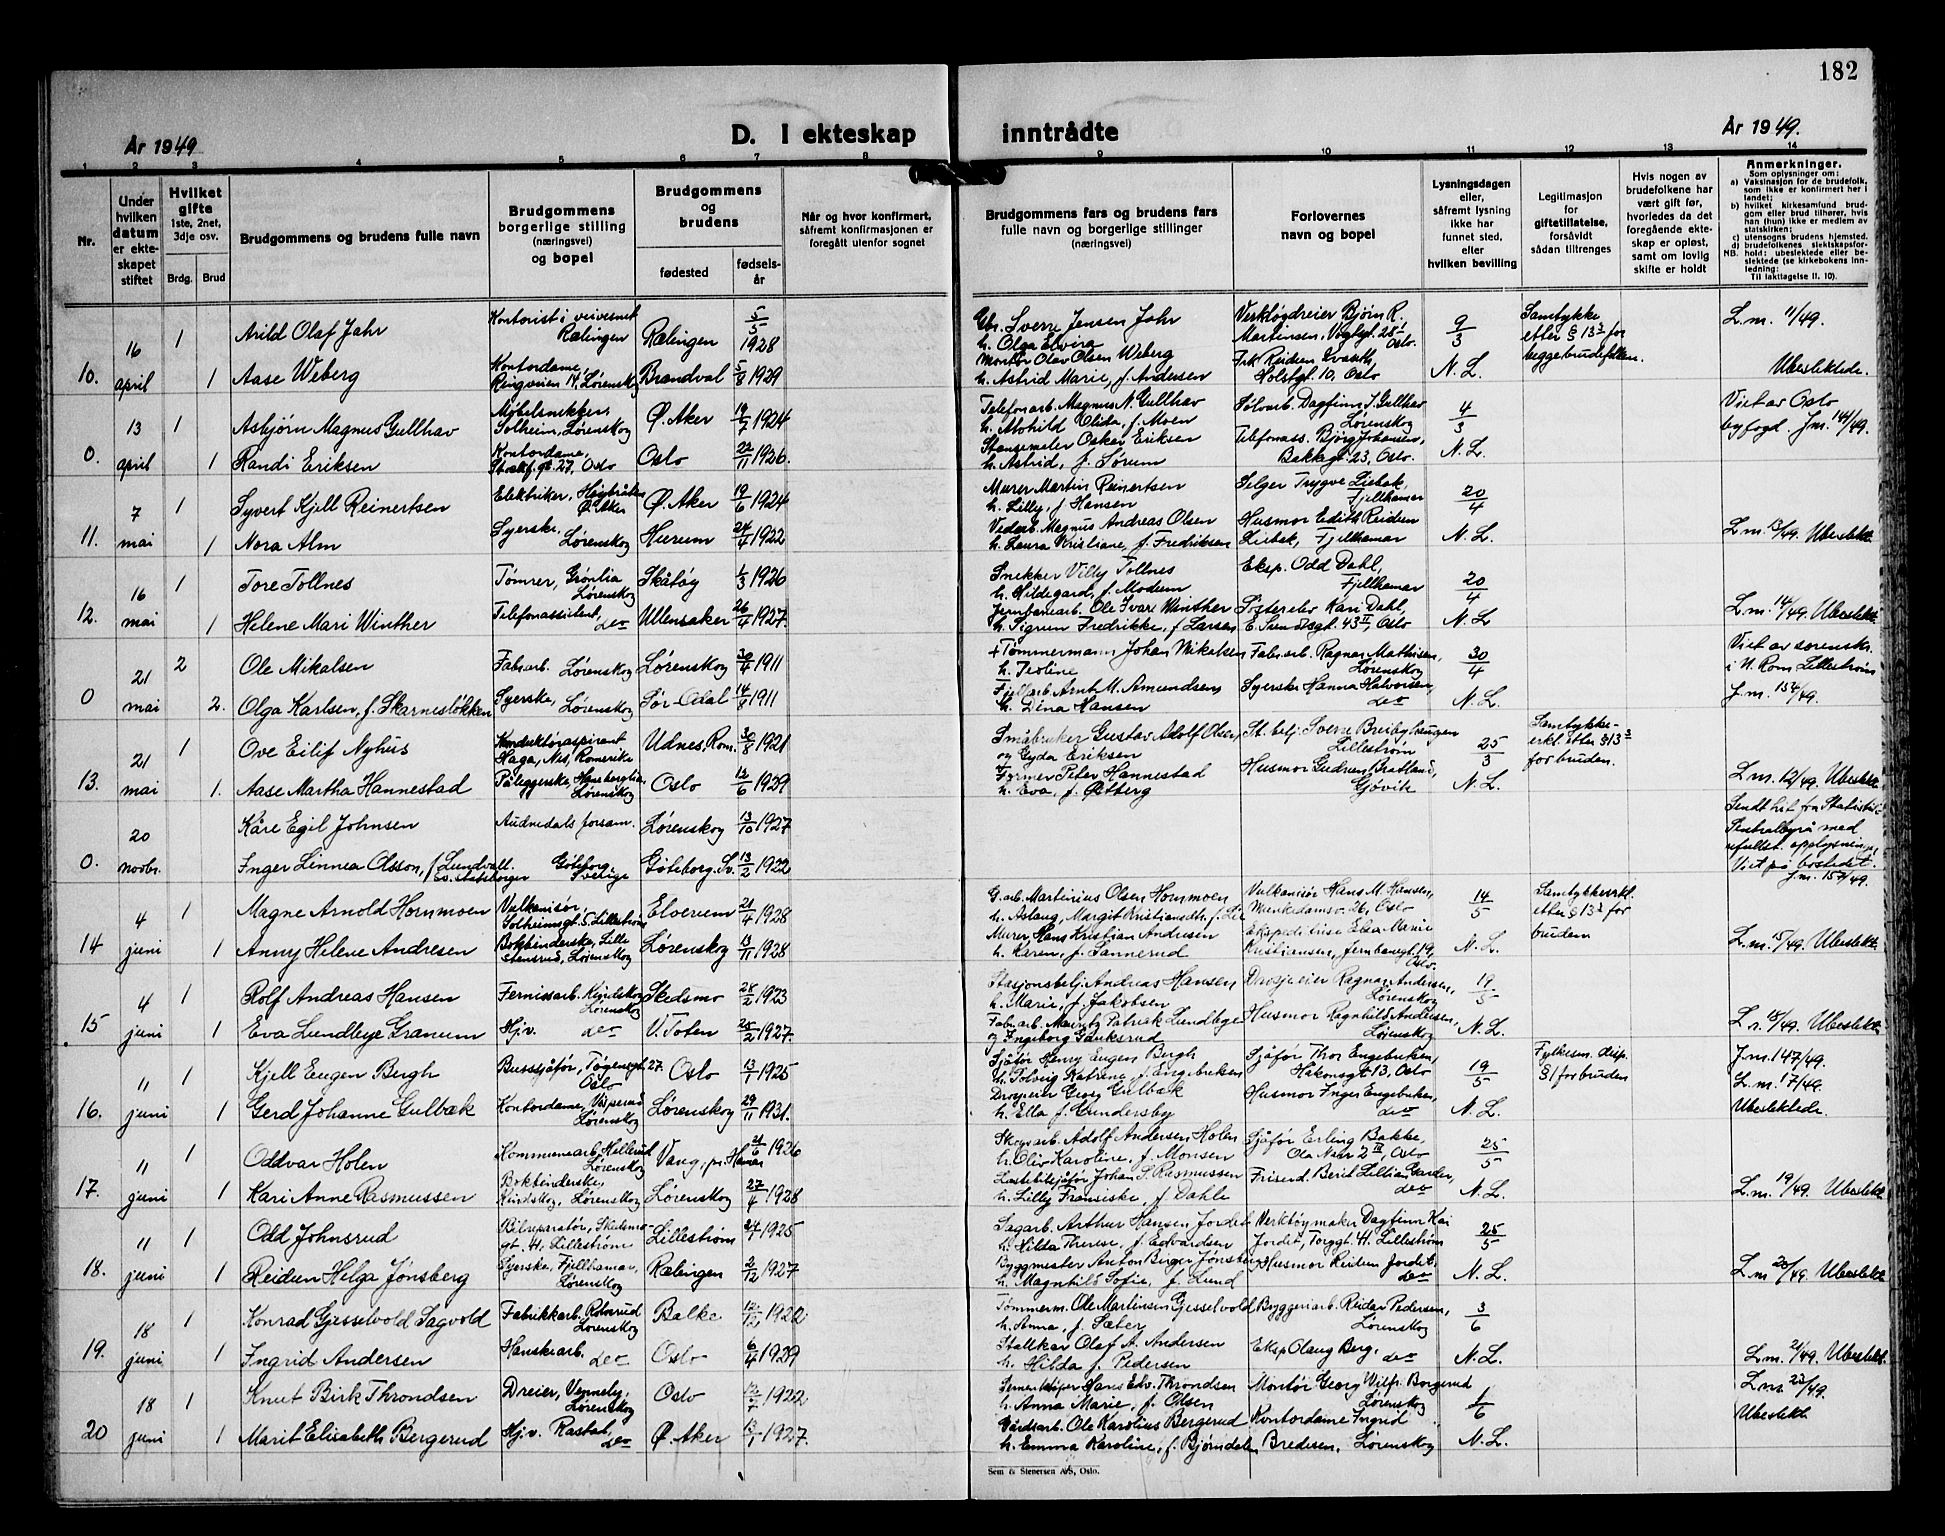 182
År 1949
D. I ekteskap
inntrådte
År 1949.
1 2 3 4 5 6 7 8 9 10 11 12 13 14
Nr.
Under
hvilken
datum
er ekte-
skapet
stiftet
Hvilket
gifte
1ste, 2net,
3dje osv.
Brdg. Brud
Brudgommens og brudens fulle navn
Brudgommens
borgerlige stilling
(næringsvei)
og bopel
Brudgommens
og
brudens
fødested
fødsels-
år
Når og hvor konfirmert,
såfremt konfirmasjonen er
foregått utenfor sognet
Brudgommens fars og brudens fars
fulle navn og borgerlige stillinger
(næringsvei)
Forlovernes
navn og bopel
Lysningsdagen
eller,
såfremt lysning
ikke har
funnet sted,
efter
hvilken bevilling
Legitimasjon
for
giftetillatelse,
forsåvidt
sådan tiltrenges
Hvis nogen av
brudefolkene har
vært gift før,
hvorledes da det
foregående ekte-
skap er opløst,
samt om lovlig
skifte er holdt
Anmerkninger.
Som oplysninger om:
a) Vaksinasjon for de brudefolk,
som ikke er konfirmert her i
landet;
b) hvilket kirkesamfund brud-
gom eller brud tilhører, hvis
han (hun) ikke er medlem av
statskirken;
c) utensogns brudens hjemsted.
d) brudefolkenes slektskapsfor-
NB. hold: ubeslektede eller be-
slektede (se kirkebokens inn-
ledning:
Til iakttagelse II. 10).
16 1 Arild Olaf Jahr Kontorist i veivesenet Rælingen Rælingen 5/5 1928
Gbr. Sverre Jensen Jahr
h. Olga Elvira
Verktøydreier Bjørn R.
Martinsen, Vogtsgt. 28 I Oslo.
9/3
Samtykke
etter § 13 3 for
begge brudefolkene.
L.m. 11/49.
10. april 1 Aase Weberg Kontordame, Ringveien 14, Lørenskog Brandval 5/8 1929
Montør Olav Olsen Weberg
h. Astrid Marie, f. Andersen
Holstgt. 10, Oslo
N.L.
Ubeslektede.
13 1 Asbjørn Magnus Gullhav Møbelsnekker, Solheim, Lørenskog Ø. Aker 1924
Telefonarb. Magnus N. Gullhav
f. Moen
Sølvarb. Dagfinn S. Gullhav
Lørenskog
4/3
Viet av Oslo
byfogd. J.m. 141/49.
0. april 1 Randi Eriksen Kontordame, 27, Oslo Oslo 22/11 1926.
Stansemaler Oskar Eriksen
h. Astrid, f. Sørum
Telefonass. Bjørg Johansen,
Bakkegt. 23, Oslo.
N.L.
7 1 Syvert Kjell Reinertsen Elektriker, Høybråten Ø. Aker Ø. Aker 19/6 1924
Murer Martin Reinertsen
h. Lilly, f. Hansen
Selger Trygve Liebak,
Fjellhamar
20/4
11. mai 1 Nora Alm Syerske, Lørenskog Hurum 24/4 1922
Vedarb. Magnus Andreas Olsen
h. Laura Kristiane, f. Fredriksen
Husmor Edith Reidun
Liebak, Fjellhamar
N.L.
L.m. 13/49. Ubeslekt.
16 1 Tore Tollnes Tømrer, Grønlia Lørenskog Skåtøy 1/3 1926
Snekker Villy Tollnes
h. Hildegard, f. Modum
Eksp. Odd Dahl,
Fjellhamar
20/4
12. mai 1 Helene Mari Winther Telefonassistent, do Ullensaker 26/4 1927.
Jernbanearb. Ole Ivare Winther
h. Sigrun Fredrikke, f. Larsen
Søsterelev Kari Dahl,
43 II, Oslo
N.L.
L.m. 14/49. Ubeslekt.
21 2 Ole Mikalsen Fabr.arb. Lørenskog Lørenskog 30/4 1911
+ Tømmermann Johan Mikalsen
h. Teoline
Fabr.arb. Ragnar Mathisen,
Lørenskog
30/4
Viet av sorenskr.
i N. Rom. Lillestrøm
J.m. 154/49.
0 mai 2. Olga Karlsen, f. Skarnesløkken Syerske, Lørenskog Sør-Odal 14/8 1911
Arnt M. Amundsen
h. Dina Hansen
Syerske Hanna Halvorsen,
do
N.L.
21 1 Ove Eilif Nyhus Konduktøraspirant Haga, Nes, Romerike Udnes, Rom. 30/8 1921
Småbruker Gustav Adolf Olsen,
og Gyda Eriksen
St. betj. Sverre Breibyhaugen
Lillestrøm
25/3
Samtykke-
erkl. etter § 13 3
for bruden.
13. mai 1. Aase Martha Hannestad Påleggerske, Lørenskog Oslo 12/6 1929
Former Peter Hannestad
h. Eva, f. Østberg
Husmor Gudrun Bratland,
Gjøvik
N.L.
L.m. 12/49. Ubeslekt.
20 Kåre Egil Johnsen Audnedals forsam. Lørenskog 13/10 1927
Sendt hit fra Statistisk
Sentralbyrå med
Viet på bostedet.
0. novbr. Inger Linnea Olsson, f. Lundvall. sv. statsborger Göteborg Sverige Göteborg. Sv. 13/2 1922
4 1 Magne Arnold Hornmoen Vulkanisør, Solheimsgt. 5, Lillestrøm Elverum 21/4 1928
G.arb. Martinius Olsen Hornmoen
h. Aslaug, Margit Kristiansdh. f. Lie
Vulkanisør Hans M. Hansen,
Munkedamsv. 26, Oslo
14/5
Samtykkeerkl.
etter § 13 3 for
bruden
14 juni 1 Anny Helene Andresen Bokbinderske, Lille stensrud, Lørenskog Lørenskog 13/11 1928
Murer Hans Kristian Andresen
h. Karen, f. Sannerud
Ekspeditrise Elsa Marie
Kristiansen, Jernbanegt. 19,
Oslo.
N.L.
L.m. 15/49. Ubeslekt.
4 1 Rolf Andreas Hansen Fernissarb. Lørenskog Skedsmo 28/2 1923
Stasjonsbetj. Andreas Hansen
h. Marie, f. Jakobsen
Drosjeeier Ragnar Andersen,
Lørenskog
19/5
15 juni 1 Eva Lundbye Granum Hjv. do V. Toten 25/2 1927.
Fabr.arb. Mauritz Patrick Lundbye
og Ingeborg Gauksrud
Husmor Ragnhild Andersen,
Lørenskog
N.L.
Ubeslekt.
11 1 Kjell Eugen Bergh Bussjåfør, Tøyengt. 27. Oslo Oslo 13/1 1925
Sjåfør Henry Eugen Bergh
h. Solveig Katrine, f. Engebretsen
Sjåfør Thor Engebretsen,
Håkonsgt. 13, Oslo
19/5
Fylkesm. disp.
§ 1 for bruden
J.m. 147/49.
L.m. 17/49.
16. juni 1 Gerd Johanne Gulbæk Kontordame, Lørenskog Lørenskog 29/11 1931.
Drosjeeier Georg Gulbæk
h. Ella f. Gundersby
Husmor Inger Engebretsen,
do
N.L.
Ubeslektede.
11 1 Oddvar Holen Kommunearb. Hellerud Lørenskog Vang, pr. Hamar 21/6 1926
Skogsarb. Adolf Andersen Holen
h. Oliv Karoline, f. Monsen
Sjåfør Erling Bakke,
Oslo
25/5
17. juni 1 Kari Anne Rasmussen Bokbinderske, Lørenskog Lørenskog 27/4 1928
Lastebilsjåfør Johan S. Rasmussen
h. Lilly Franciske, f. Dahle
Friserd. Berit Lillian Garder,
do
N.L.
L.m. 19/49. Ubeslekt.
11 1 Odd Johnsrud Bilreparatør, Skedsmo- gt. 41, Lillestrøm Lillestrøm 1925
Sagarb. Arthur Hansen Jordet
h. Hilda Therese, f. Edvardsen
Verktøymaker Dagfinn Kai
Jordet, Torggt. 41. Lillestrøm
25/5
18. juni 1 Reidun Helga Jønsberg Syerske, Fjellhamar, Lørenskog Rælingen 2/12 1927
Byggmester Anton Birger Jønsberg
h. Magnhild Sofie, f. Lund
Husmor Reidun Jordet,
do
N.L.
L.m 20/49. Ubeslekt.
18 1 Konrad Gjesselvold Sagvold Fabrikkarb. Lørenskog Balke 12/12 1922
Tømmerm. Ole Martinsen Gjesselvold
h. Anna, f. Sæter
Byggeriarb. Reidar Pedersen,
Lørenskog
3/6
19. juni 1 Ingrid Andersen Hanskearb. do Oslo 6/4 1929
Stallkar Olaf A. Andersen
h. Hilda f. Pedersen
Eksp Olaug Berg,
do
N.L.
L.m. 21/49. Ubeslekt.
18 1 Knut Birk Throndsen Dreier, Venneby, Lørenskog Oslo 1922
Hans Edv. Throndsen
h. Anna Marie, f. Olsen
Montør Georg Wilfr. Bergerud
Lørenskog
1/6
L.m. 23/49.
20 juni 1 Marit Elisabeth Bergerud Hjv. Rastad, do Ø. Aker 13/1 1927.
Gårdsarb. Ole Karolius Bergerud
h. Emma Karoline, f. Bjørndalen
Kontordame Ingrid
Bredesen, Lørenskog
N.L.
Ubeslekt.
Sem & Stenersen A/S, Oslo.